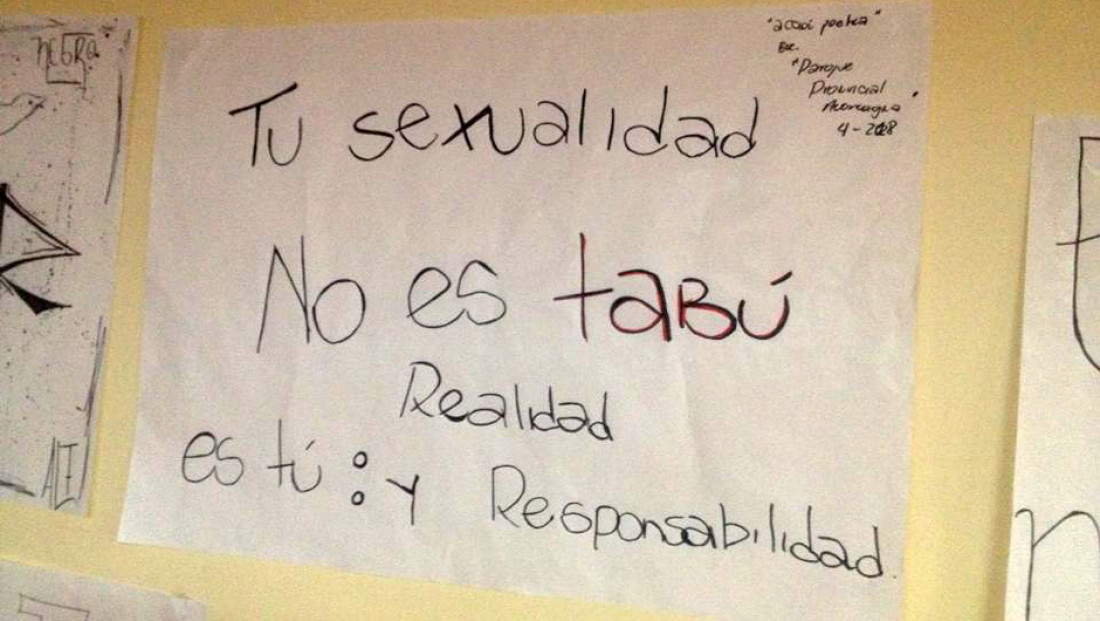 NEGRA
ALI
"acción poética"
Esc.
"Parque
Provincial
Aconcagua"
4-208
Tu sexualidad
No es taBú
Realidad
es tú : y Responsabilidad.